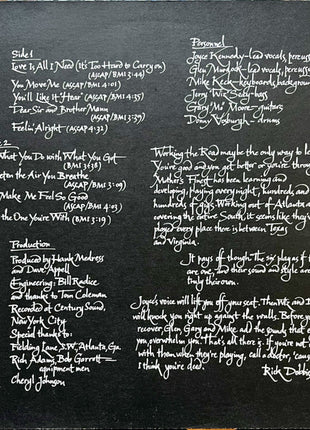 Side 1
Love Is All I Need (It's Too Hard to Carry on)
(ASCAP/BMI 3:44)
You Move Me (ASCAP/BMI 4:01)
You'll Like it 'Hear' (ASCAP/BMI 4:35)
Dear Sir and Brother Mann
(ASCAP/BMI 4:39)
Feelin' Alright (ASCAP 4:32)
2
What You Do with What You Got
(BMI 3:38)
the Air You Breathe
(ASCAP/BMI 3:09)
Make Me Feel So Good
(ASCAP/BMI 3:03)
the One You're With (BMI 3:19)
Production
Produced by Hank Medress
and Dave Appell
Engineering: Bill Radice
and thanks to Tom Coleman
Recorded at Century Sound,
New York City
Special thanks to:
Fielding Lane, S.W., Atlanta, Ga.
Rich Adams, Bob Garrett
equipment men
Cheryl Johnson
Personnel
Joyce Kennedy—lead vocals, percuss
Glen Murdock—lead vocals, percuss
Mike Keck—keyboards, background
Jerry Wizard Seay—bass
Gary Mo' Moore—guitars
Donny Vosburgh—drums
Working the Road maybe the only way to le
You're good and you get better or you're through
Mother's Finest has been learning and
developing, playing every night, hundreds and
hundreds of gigs. Working out of Atlanta a
covering the entire South, it seems like they've
played every place there is between Texas
and Virginia.
It pays off though. The six play as if th
are one, and their sound and style are
truly their own.
Joyce's voice will lift you off your seat. Then Wiz and D
will knock you right up against the walls. Before you
recover Glen, Gary and Mike add the sounds that e
you overwhelm you. That's all there is. If you're not
with them when they're playing, call a doctor, 'cause
I think you're dead.
Rick Dobbis